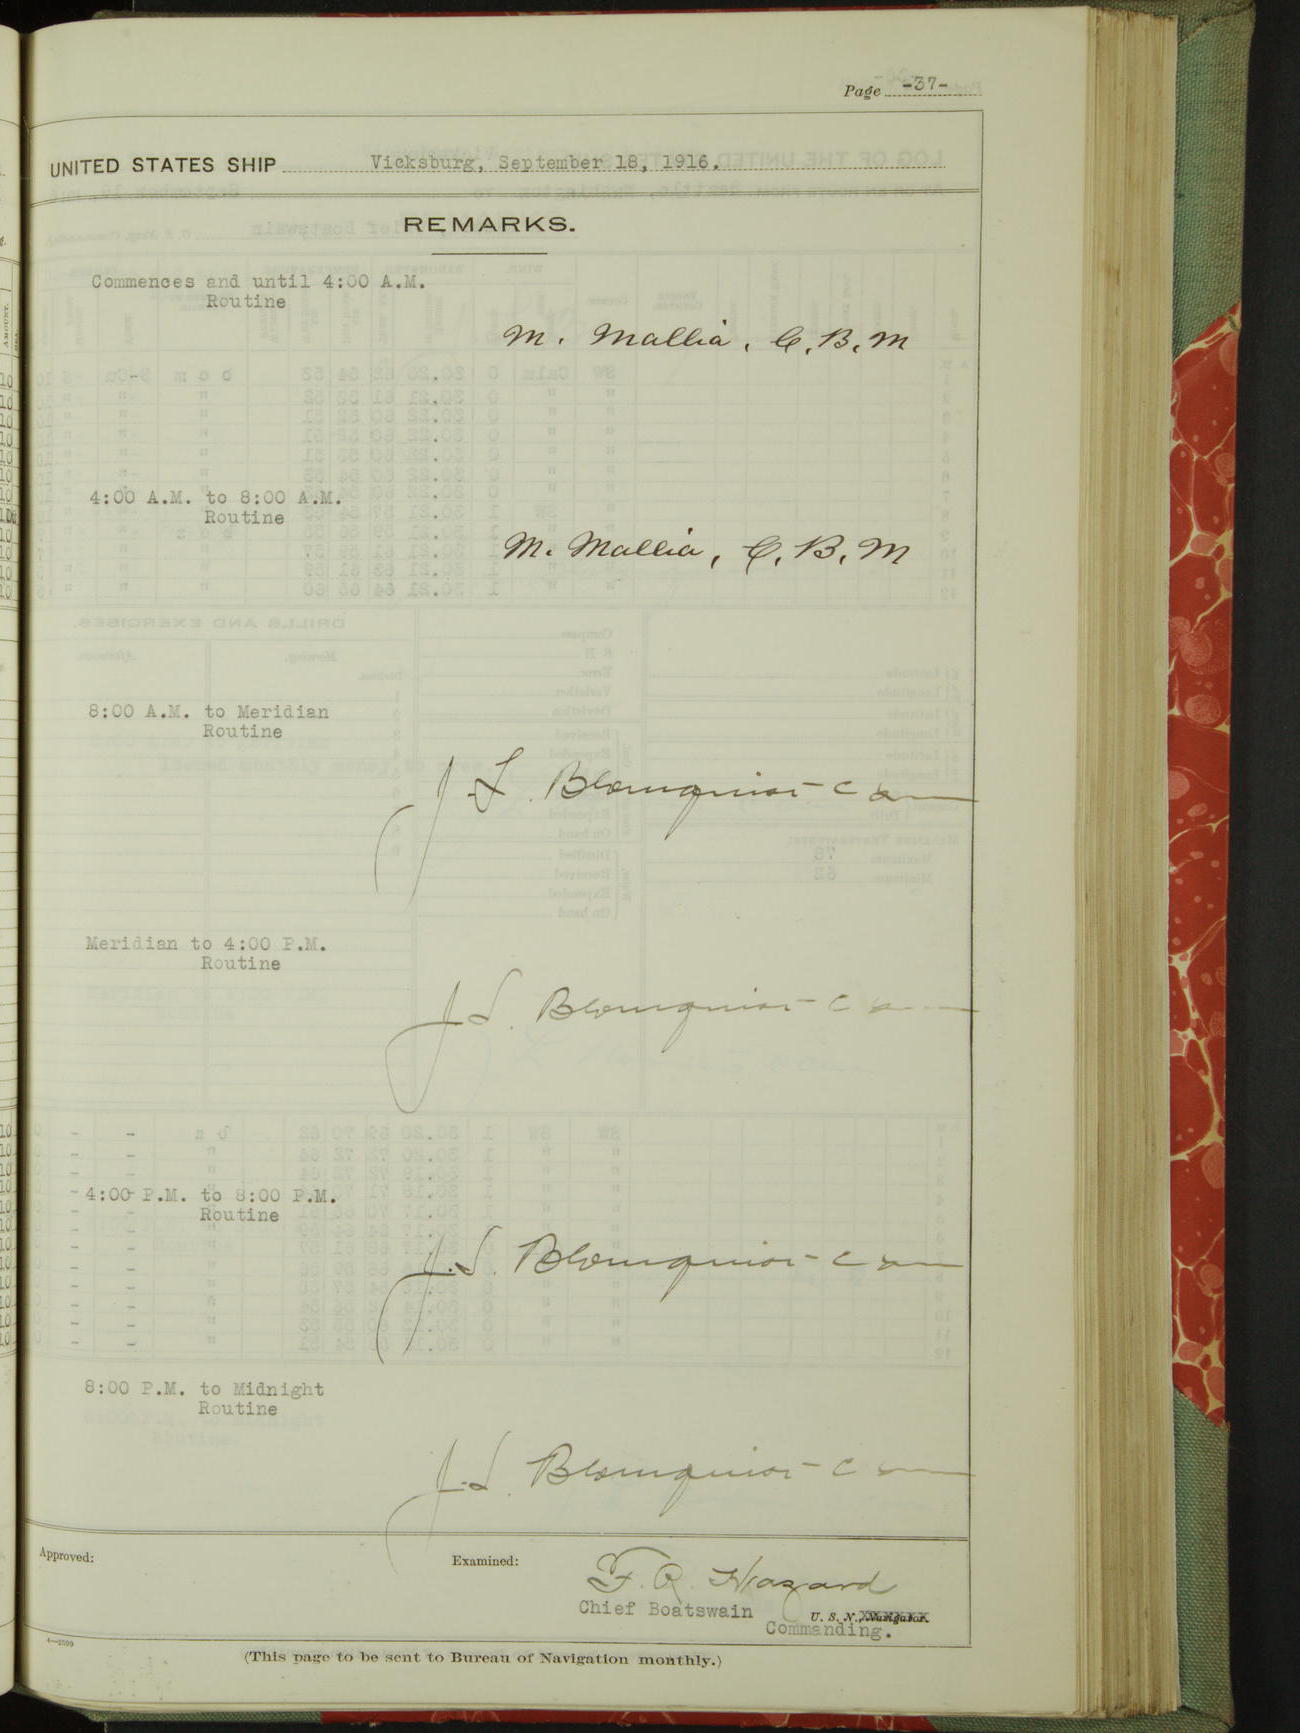 Page -37-
UNITED STATES SHIP Vicksburg, September 18, 1916.
REMARKS.
Commences and until 4:00 A.M.
Routine
M. Mallia, C.B.M
4:00 A.M. to 8:00 A.M.
Routine
M. Mallia, C.B.M
8:00 A.M. to Meridian
Routine
J. L. Blomquist
Meridian to 4:00 P.M.
Routine
J L. Blomquist
4:00 P.M. to 8:00 P.M.
Routine
J. L. Blomquist
8:00 P.M. to Midnight
Routine
J. L. Blomquist
Approved:
Examined:
Hazard
Chief Boatswain U. S. N., Navigator.
Commanding.
4—2599
(This page to be sent to Bureau of Navigation monthly.)